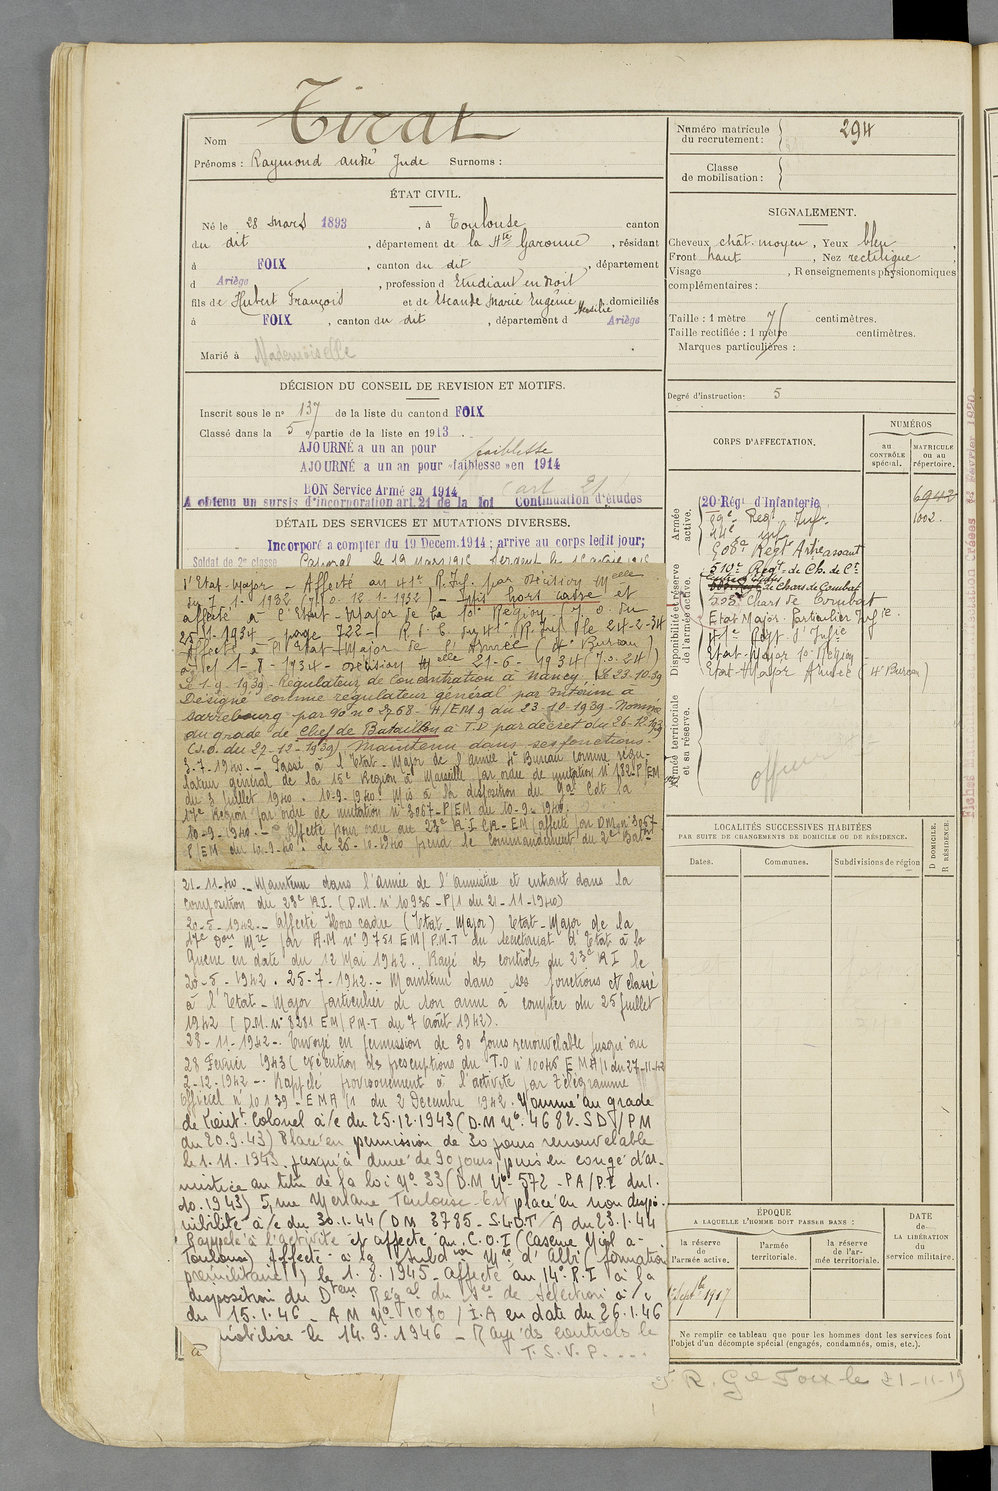 Tirat
Nom
Prénoms : Raymond andré Jude Surnoms :
ÉTAT CIVIL.
Né le 28 Mars 1893, à Toulouse canton
du dit, département de la Hte Garonne, résidant
à FOIX, canton du dit, département
d Ariège, profession d Etudiant en droit
fils de Hubert François et de Escande Marie Eugénie, domiciliés
à FOIX, canton du dit, département d Ariège
Marié à Mademoiselle
DÉCISION DU CONSEIL DE REVISION ET MOTIFS.
Inscrit sous le no 137 de la liste du canton d FOIX
Classé dans la 5 e partie de la liste en 1913.
AJOURNÉ a un an pour faiblesse
AJOURNÉ a un an pour faiblesse en 1914
BON Service Armé en 1914 (art 21
A obtenu un sursis d'incorporation art. 21 de la loi Continuation d'études
DÉTAIL DES SERVICES ET MUTATIONS DIVERSES.
Incorporé a compter du 19 Decem. 1914 ; arrive au corps ledit jour;
Soldat de 2e classe Caporal le 19 mars 1915 Sergent le
l'Etat-Major - Affecté au 41e R. Inf. par décision Mlle
du 7.1.1932 (J.O. 12-1-1932) - Mis hors cadre et
affecté à l'Etat-Major de la 10e Région (J.O. du
25-1-1934 - page 722 -) R.I.G. du 41e R. Inf. le 24-2-34
Affecté à l'Etat-Major de l'Armée (4e Bureau)
à/c du 1-8-1934 - Décision Mlle 21-6-1934 (J.O. 24)
Le 1-9-1939 - Régulateur de Concentration à Nancy. Le 23-10-39
Désigné comme régulateur général par intérim à
Sarrebourg par go no 2768-4/EMg du 23-10-1939 - Nommé
au grade de Chef de Bataillon à T.D par décret du 26-12-1939
(J.O. du 27-12-1939) Maintenu dans ses fonctions.
3-7-1940 - Passé à l'Etat-Major de l'armée 4e Bureau comme régu-
lateur général de la 15e Région à Marseille par ordre de mutation No 132-P/EM
du 3 juillet 1940. 10-9-1940. Mis à la disposition du Gal Cdt la
17e Région par ordre de mutation no 3067-P/EM du 10-9-1940.
10-9-1940 - Affecté pour ordre au 23e R.I. CR-EM (affecté par D.M. no 3067
P/EM du 10-9-40). Le 26-10-1940 prend le commandement du 2e Batn
21-11-40 - Maintenu dans l'armée de l'armistice et entrant dans la
composition du 23e RI. (D.M. No 10936-P/1 du 21-11-1940)
20-5-1942 - Affecté Hors cadre (Etat-Major) Etat-Major de la
17e Don Mre par A.M No 9751 EM/P.M-T du secrétariat d'Etat à la
Guerre en date du 12 Mai 1942. Rayé des contrôles du 23e RI le
20-5-1942. 25-7-1942 - Maintenu dans ses fonctions et classé
à l'Etat-Major particulier de son arme à compter du 25 Juillet
1942 (D.M. No 8281 EM/P.M-T du 7 Août 1942).
28-11-1942 - Envoyé en permission de 30 jours renouvelable jusqu'au
28 Fevrier 1943 (exécution des prescriptions du T.O no 10046 EMA/1 du 27-11-42
2-12-1942 - Rappelé provisoirement à l'activité par télégramme
officiel no 10139-EMA/1 du 2 Decembre 1942. Nommé au grade
de Lieut. Colonel à/c du 25.12.1943 (D.M No. 4682-SD/PM
du 20.9.43) Placé en permission de 30 jours renouvelable
le 1.11.1943 jusqu'à durée de 90 jours, puis en congé d'ar-
mistice au titre de la loi No. 33 (D.M No. 572-PA/PE du 1.
10.1943) 5, rue Merlane Toulouse. Est placé en non dispo-
nibilité à/c du 30.1.44 (DM 3785-S.G.D.T/A du 23.1.44
Rappelé à l'activité et affecté au C.O.I (Caserne Niel à
Toulouse) Affecté à la Subdon Mre d'Albi (formation
prémilitaire) le 1.8.1945 - affecté au 14e R.I à la
disposition du Dteur Régal du Sce de Sélection à/c
du 15.1.46 - A M No 1080/I.A en date du 26.1.46
mobilisé le 14.9.1946 - Rayé des contrôles le
T.S.V.P....
Numéro matricule du recrutement : 294
Classe de mobilisation :
SIGNALEMENT.
Cheveux chât. moyen, Yeux bleu,
Front haut, Nez rectiligne,
Visage, Renseignements physionomiques
complémentaires :
Taille : 1 mètre 71 centimètres.
Taille rectifiée : 1 mètre centimètres.
Marques particulières :
Degré d'instruction : 5
CORPS D'AFFECTATION.
NUMÉROS
au CONTRÔLE spécial.
MATRICULE ou au répertoire.
Armée active.
20 Rég d'Infanterie 6942
59e Regt Inf. 1002.
Disponibilité et réserve de l'armée active.
505e Regt Artie assaut
510e Regt de Ch. de Ct
de Chars de Combat
503e Chars de Combat
Etat Major Particulier Infie
41e Regt d'Infie
Etat-Major 10e Région
Etat-Major Armée (4e Bureau)
Armée territoriale et sa réserve.
officier
LOCALITÉS SUCCESSIVES HABITÉES
PAR SUITE DE CHANGEMENTS DE DOMICILE OU DE RÉSIDENCE.
Dates. Communes. Subdivisions de région
D DOMICILE. R RÉSIDENCE.
ÉPOQUE
A LAQUELLE L'HOMME DOIT PASSER DANS :
la réserve de l'armée active.
l'armée territoriale.
la réserve de l'armée territoriale.
DATE de LA LIBÉRATION du service militaire.
1 Septbre 1917
Ne remplir ce tableau que pour les hommes dont les services font
l'objet d'un décompte spécial (engagés, condamnés, omis, etc.).
F. R. Gal Foix le 21-11-19